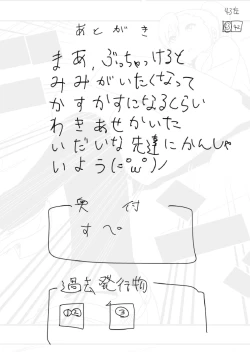 43左
あとがき
まあ,ぶっちゃけると
みみがいたくなって
かすかすになるくらい
わきあせかいた
いだいな先達にかんしゃ
いよう(=°ω°)ノ
奥付
すぺ
過去発行物
①② ③